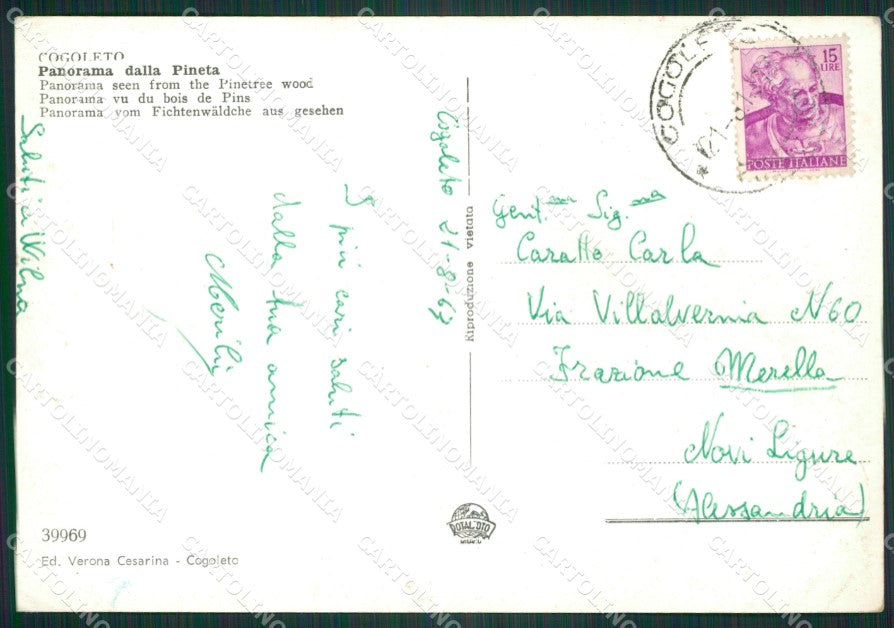 COGOLETO
Panorama dalla Pineta
Panorama seen from the Pinetree wood
Panorama vu du bois de Pins
Panorama vom Fichtenwäldche aus gesehen
Saluti a Wilma
Cogoleto 21-8-67
I più cari saluti
dalla tua amica
Merilù
Riproduzione vietata
COGOLETO
21-8
15
LIRE
POSTE ITALIANE
Gent.ma Sig.na
Caratto Carla
Via Villalvernia N 60
Frazione Merella
Novi Ligure
(Alessandria)
39969
Ed. Verona Cesarina - Cogoleto
ROTALFOTO
MILANO
CARTOLINOMANIA